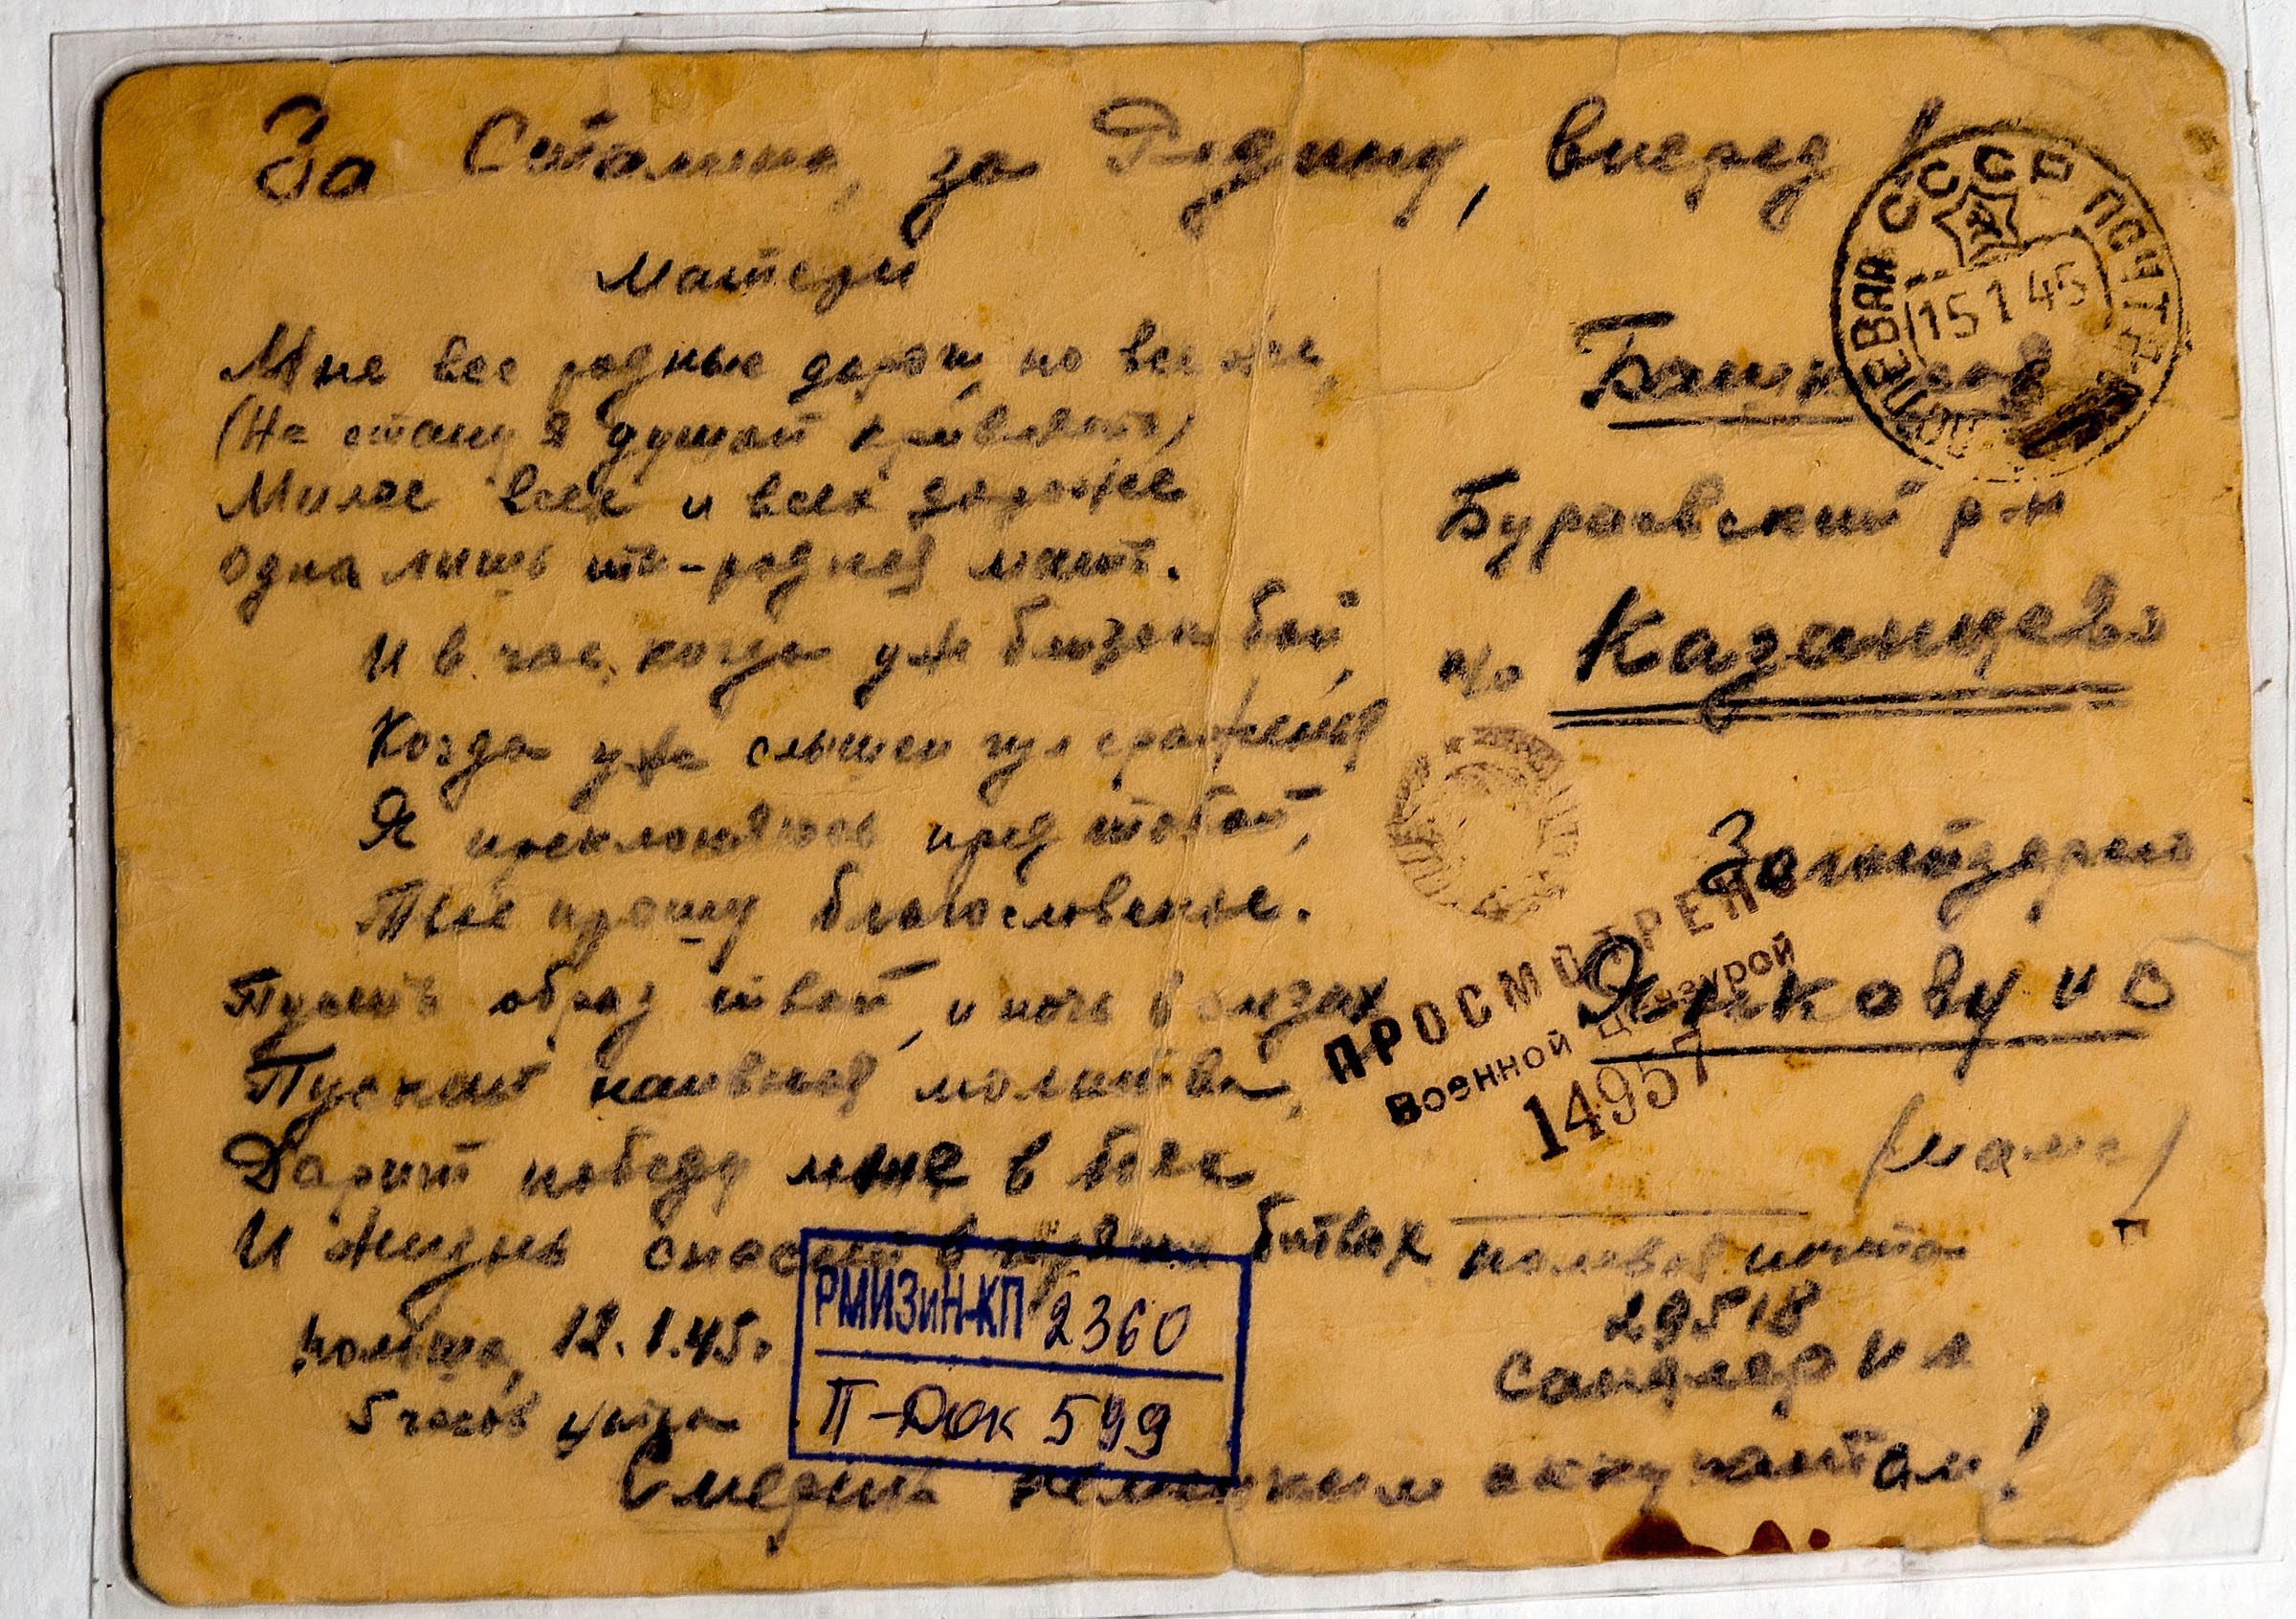 За Сталина, за Родину, вперед!
Матери
Мне все родные дороги, но все же,
(Не стану я душой кривлять)
Милее всех и всех дороже
одна лишь ты - родная мать.
И в час, когда уж близок бой,
Когда уже слышен гул сраженья
Я преклоняюсь пред тобой,
Твое прошу благословенье.
Пусть образ твой, и ночь в слезах
Пускай наивная молитва,
Дарит победу мне в боях
И жизнь спасает в битвах
Польша, 12.1.45г
5 часов утра
Смерть немецким оккупантам!
СССР
ПОЛЕВАЯ ПОЧТА
15 1 45
Бураевский р-н
п/о Казанцево
Заготзерно
ПРОСМОТРЕНО
Военной Цензурой
14957
(маме)
полевая почта
29518
РМИЗиН-КП 2360
П-Док 599